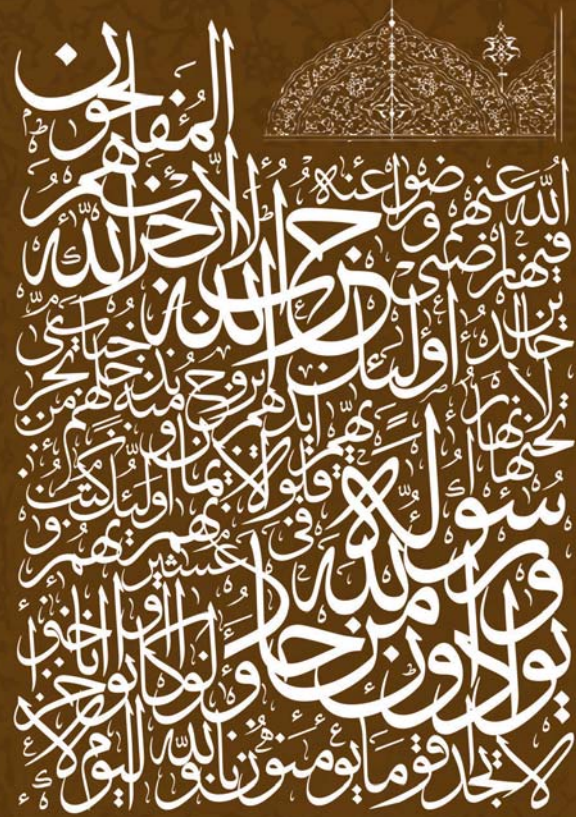 لا تجد قوما يؤمنون بالله واليوم الآخر
يوادون من حاد الله ورسوله
ولو كانوا آباءهم أو أبناءهم أو إخوانهم أو عشيرتهم
أولئك كتب في قلوبهم الإيمان
وأيدهم بروح منه
ويدخلهم جنات تجري من تحتها الأنهار
خالدين فيها رضي الله عنهم ورضوا عنه
أولئك حزب الله
ألا إن حزب الله هم المفلحون